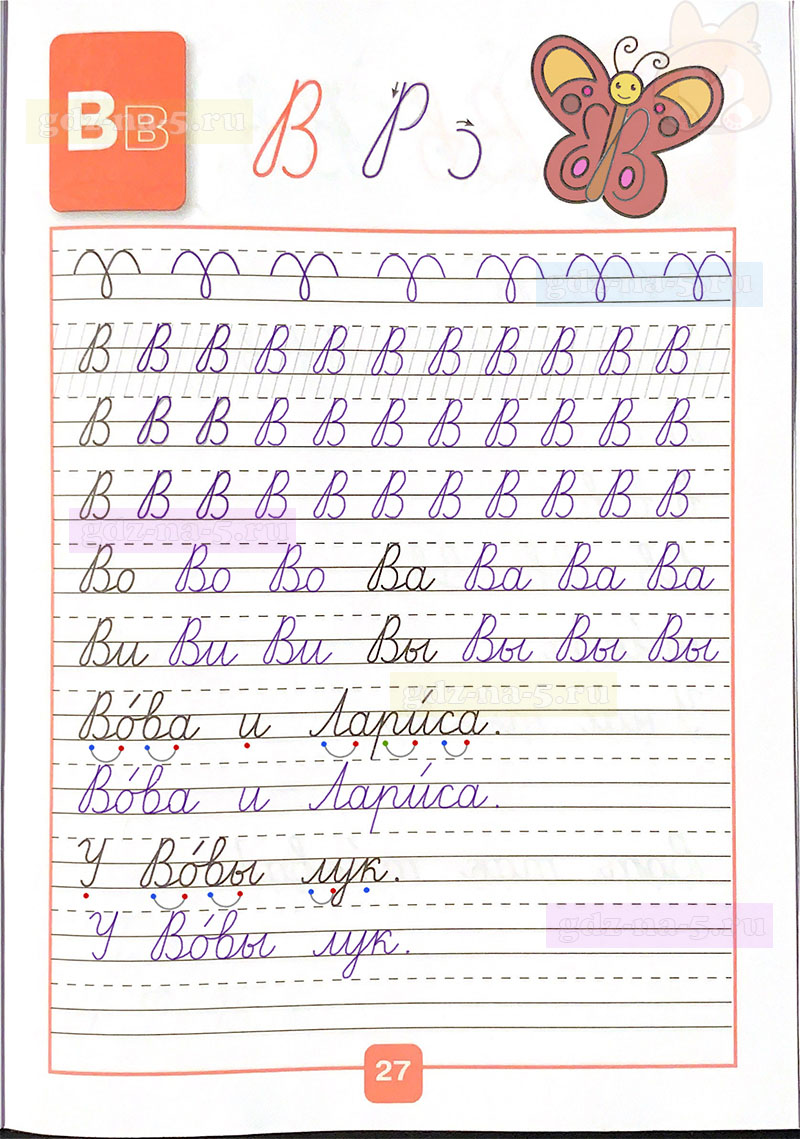 В В
gdz-na-5.ru
В
gdz-na-5.ru
В В В В В В В В В В В
В В В В В В В В В В В
В В В В В В В В В В В
gdz-na-5.ru
Во Во Во Ва Ва Ва Ва
Ви Ви Ви Вы Вы Вы Вы
gdz-na-5.ru
Во́ва и Лари́са.
Во́ва и Лари́са.
У Во́вы лук.
У Во́вы лук.
gdz-na-5.ru
27